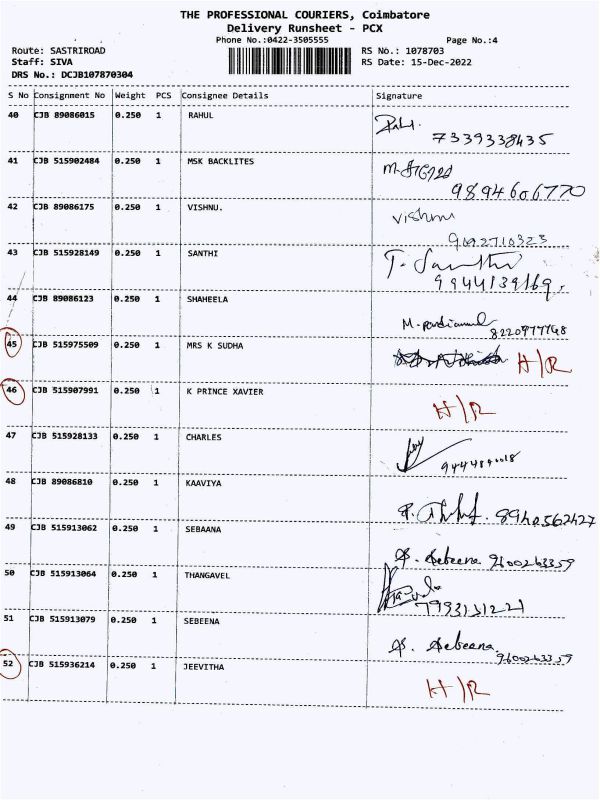 THE PROFESSIONAL COURIERS, Coimbatore
Delivery Runsheet - PCX
Phone No.:0422-3505555 Page No.:4
Route: SASTRIROAD RS No.: 1078703
Staff: SIVA RS Date: 15-Dec-2022
DRS No.: DCJB107870304
S No Consignment No Weight PCS Consignee Details Signature
40 CJB 89086015 0.250 1 RAHUL
7339338435
41 CJB 515902484 0.250 1 MSK BACKLITES
9894606770
42 CJB 89086175 0.250 1 VISHNU. Vishnu
9092710323
43 CJB 515928149 0.250 1 SANTHI T. Santhi
9944139169.
44 CJB 89086123 0.250 1 SHAHEELA
8220977748
45 CJB 515975509 0.250 1 MRS K SUDHA H/R
46 CJB 515907991 0.250 1 K PRINCE XAVIER
H/R
47 CJB 515928133 0.250 1 CHARLES
48 CJB 89086810 0.250 1 KAAVIYA
8940562427
49 CJB 515913062 0.250 1 SEBAANA
S. Sebeena 9600263359
50 CJB 515913064 0.250 1 THANGAVEL
51 CJB 515913079 0.250 1 SEBEENA
S. Sebeena. 9600263359
52 CJB 515936214 0.250 1 JEEVITHA
H/R